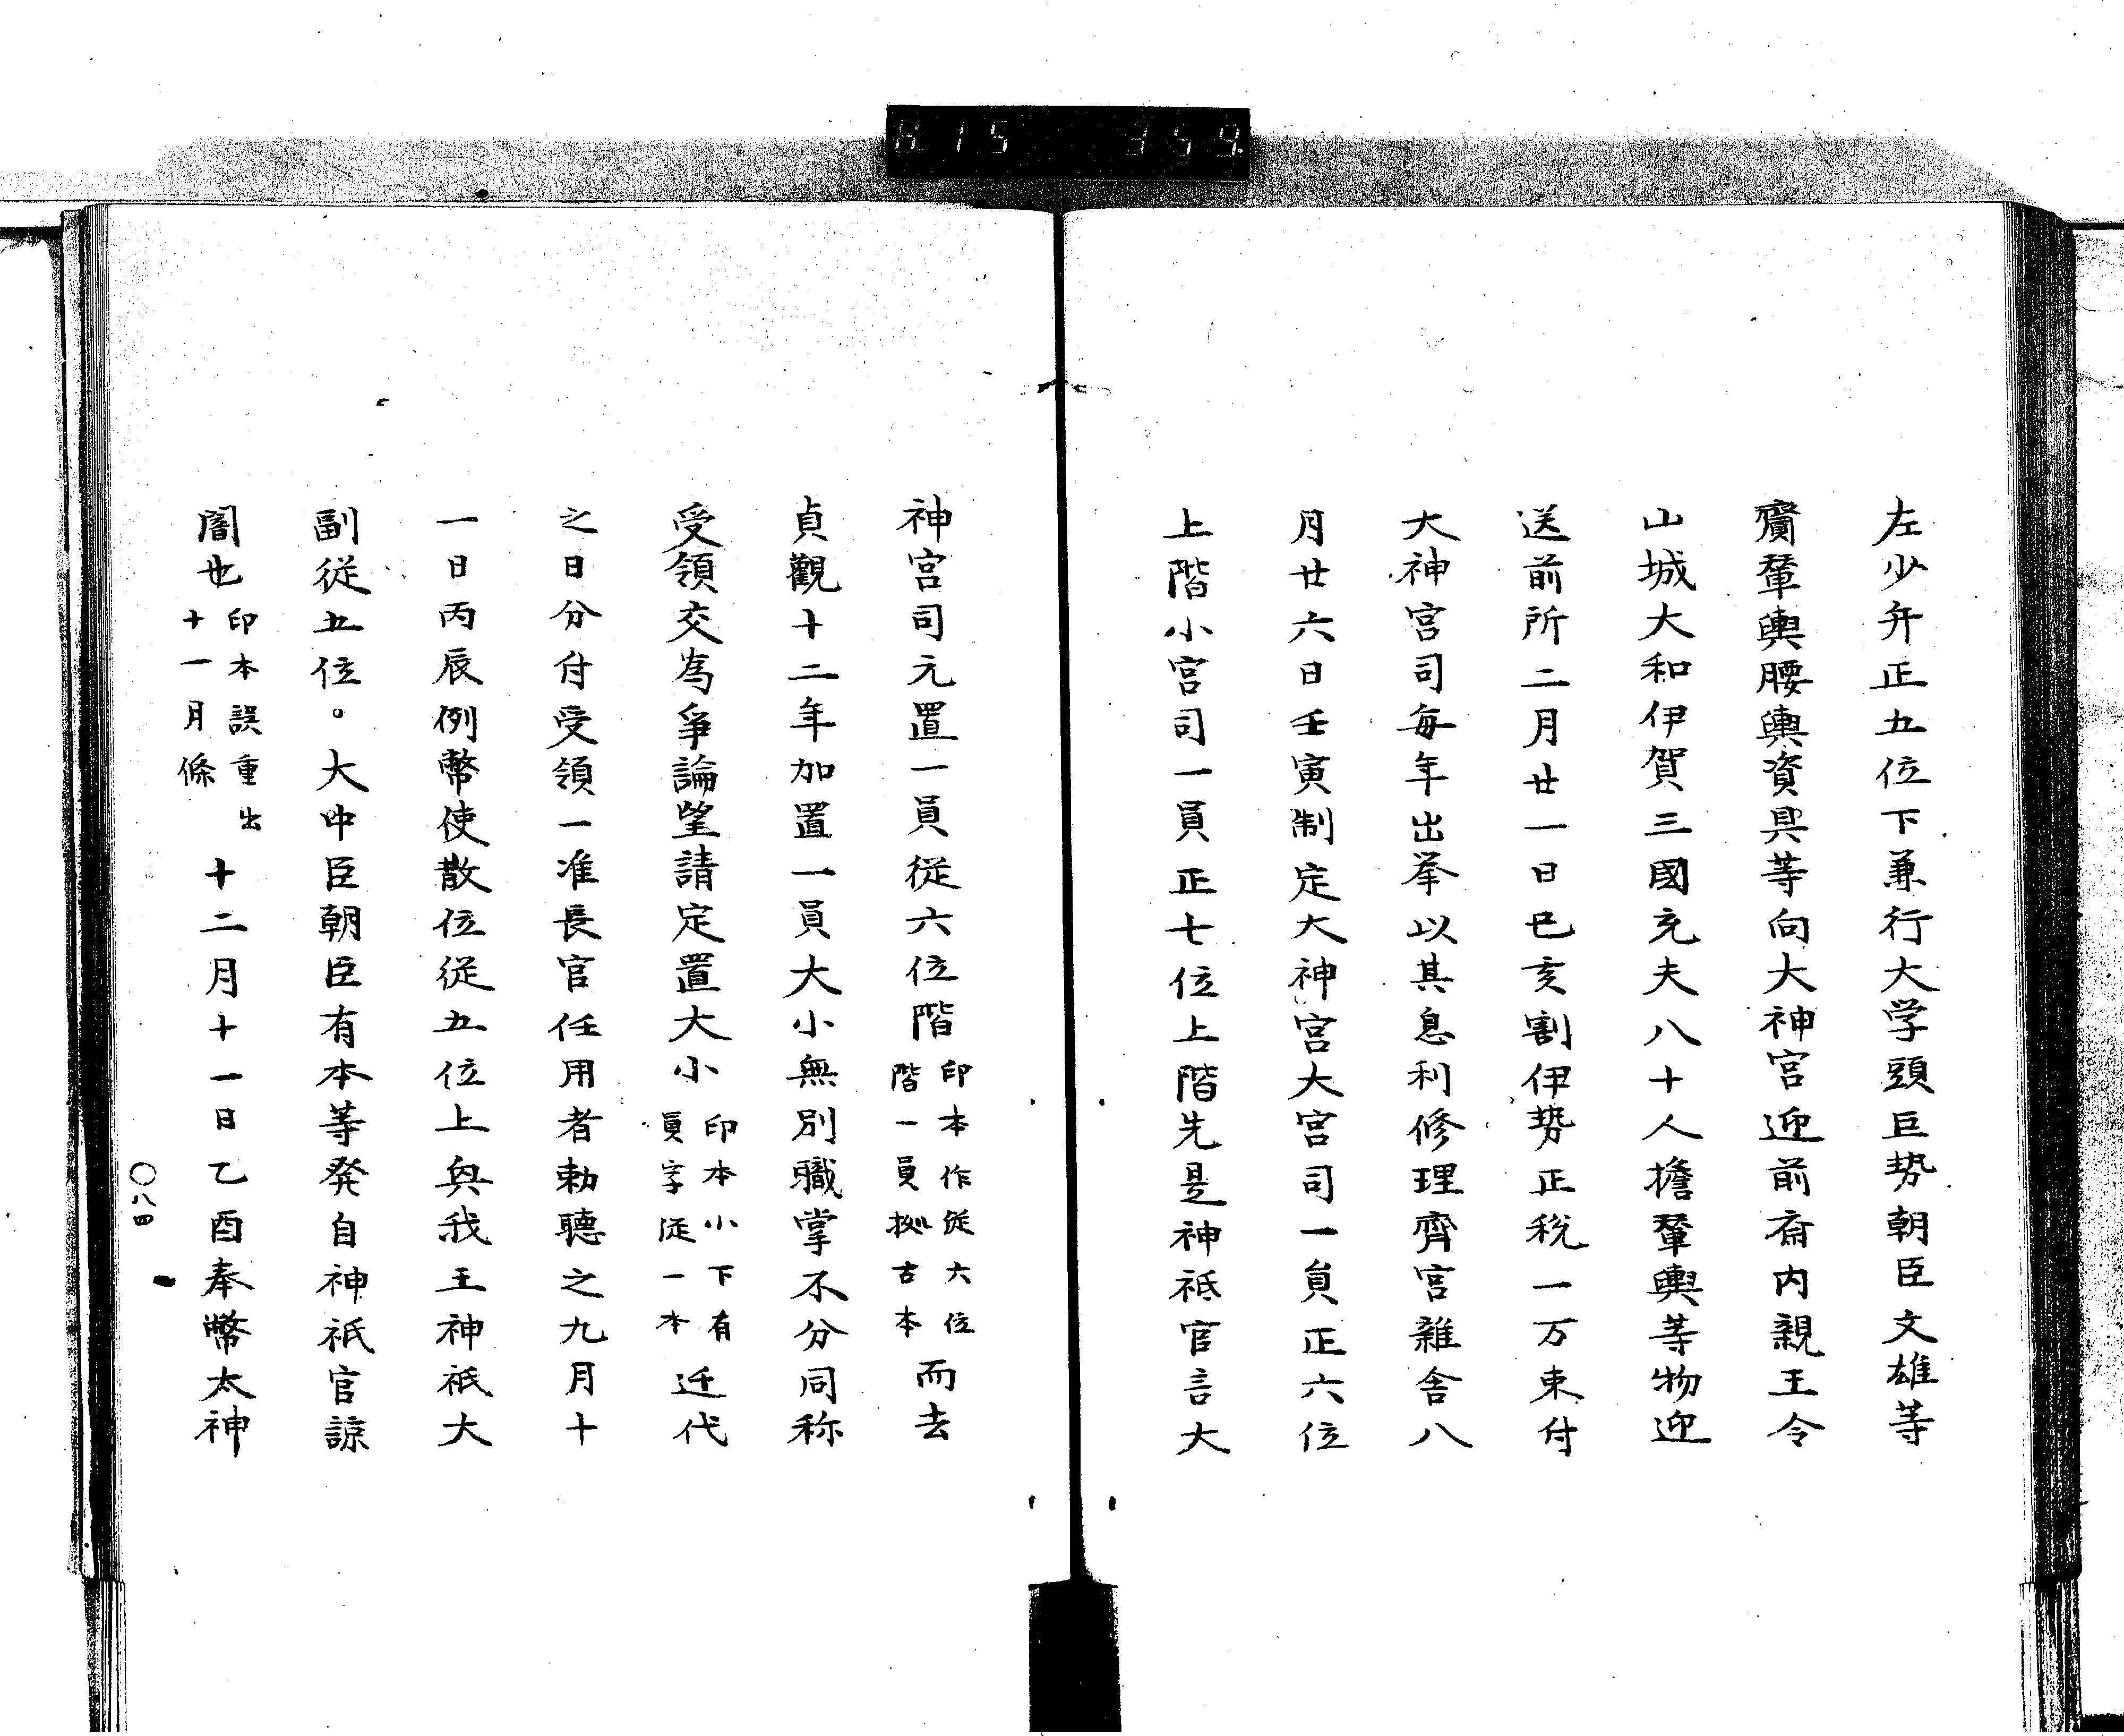 左少弁正五位下兼行大学頭巨勢朝臣文雄等
齎輦輿腰輿資具等向大神宮迎前斎内親王令
山城大和伊賀三國充夫八十人擔輦輿等物迎
送前所二月廿一日已亥割伊勢正税一万束付
大神宮司毎年出挙以其息利修理齊宮雜舎八
月廿六日壬寅制定大神宮大宮司一員正六位
上階小宮司一員正七位上階先是神祇官言大
神宮司元置一員従六位階印本作従六位階一員拠古本而去
貞觀十二年加置一員大小無別職掌不分同称
受領交為爭論望請定置大小印本小下有員字従一本迁代
之日分付受領一准長官任用者勅聴之九月十
一日丙辰例幣使散位従五位上與我王神祇大
副従五位。大中臣朝臣有本等発自神祇官諒
闇也印本誤重出十一月條十二月十一日乙酉奉幣太神
〇八四
815 359